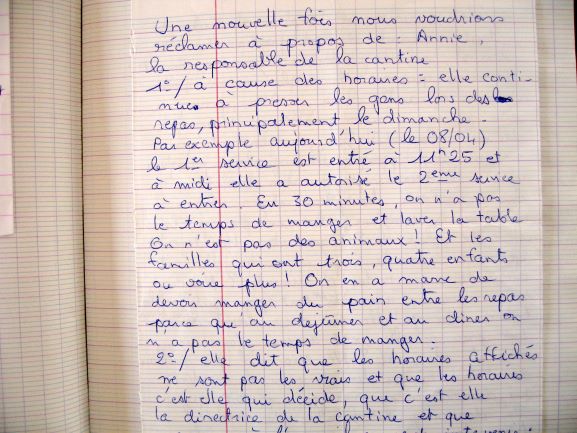 Une nouvelle fois nous voudrions
réclamer à propos de : Annie,
la responsable de la cantine
1°/ à cause des horaires = elle conti-
nue à presser les gens lors des
repas, principalement le dimanche.
Par exemple aujourd'hui (le 08/04)
le 1er service est entré à 11h25 et
à midi elle a autorisé le 2ème service
à entrer. En 30 minutes, on n'a pas
le temps de manger et laver la table
On n'est pas des animaux! Et les
familles qui ont trois, quatre enfants
ou voire plus! On en a marre de
devoir manger du pain entre les repas
parce qu'au déjeuner et au diner on
n'a pas le temps de manger.
2°/ elle dit que les horaires affichés
ne sont pas les vrais et que les horaires
c'est elle qui décide, que c'est elle
la directrice de la cantine et que